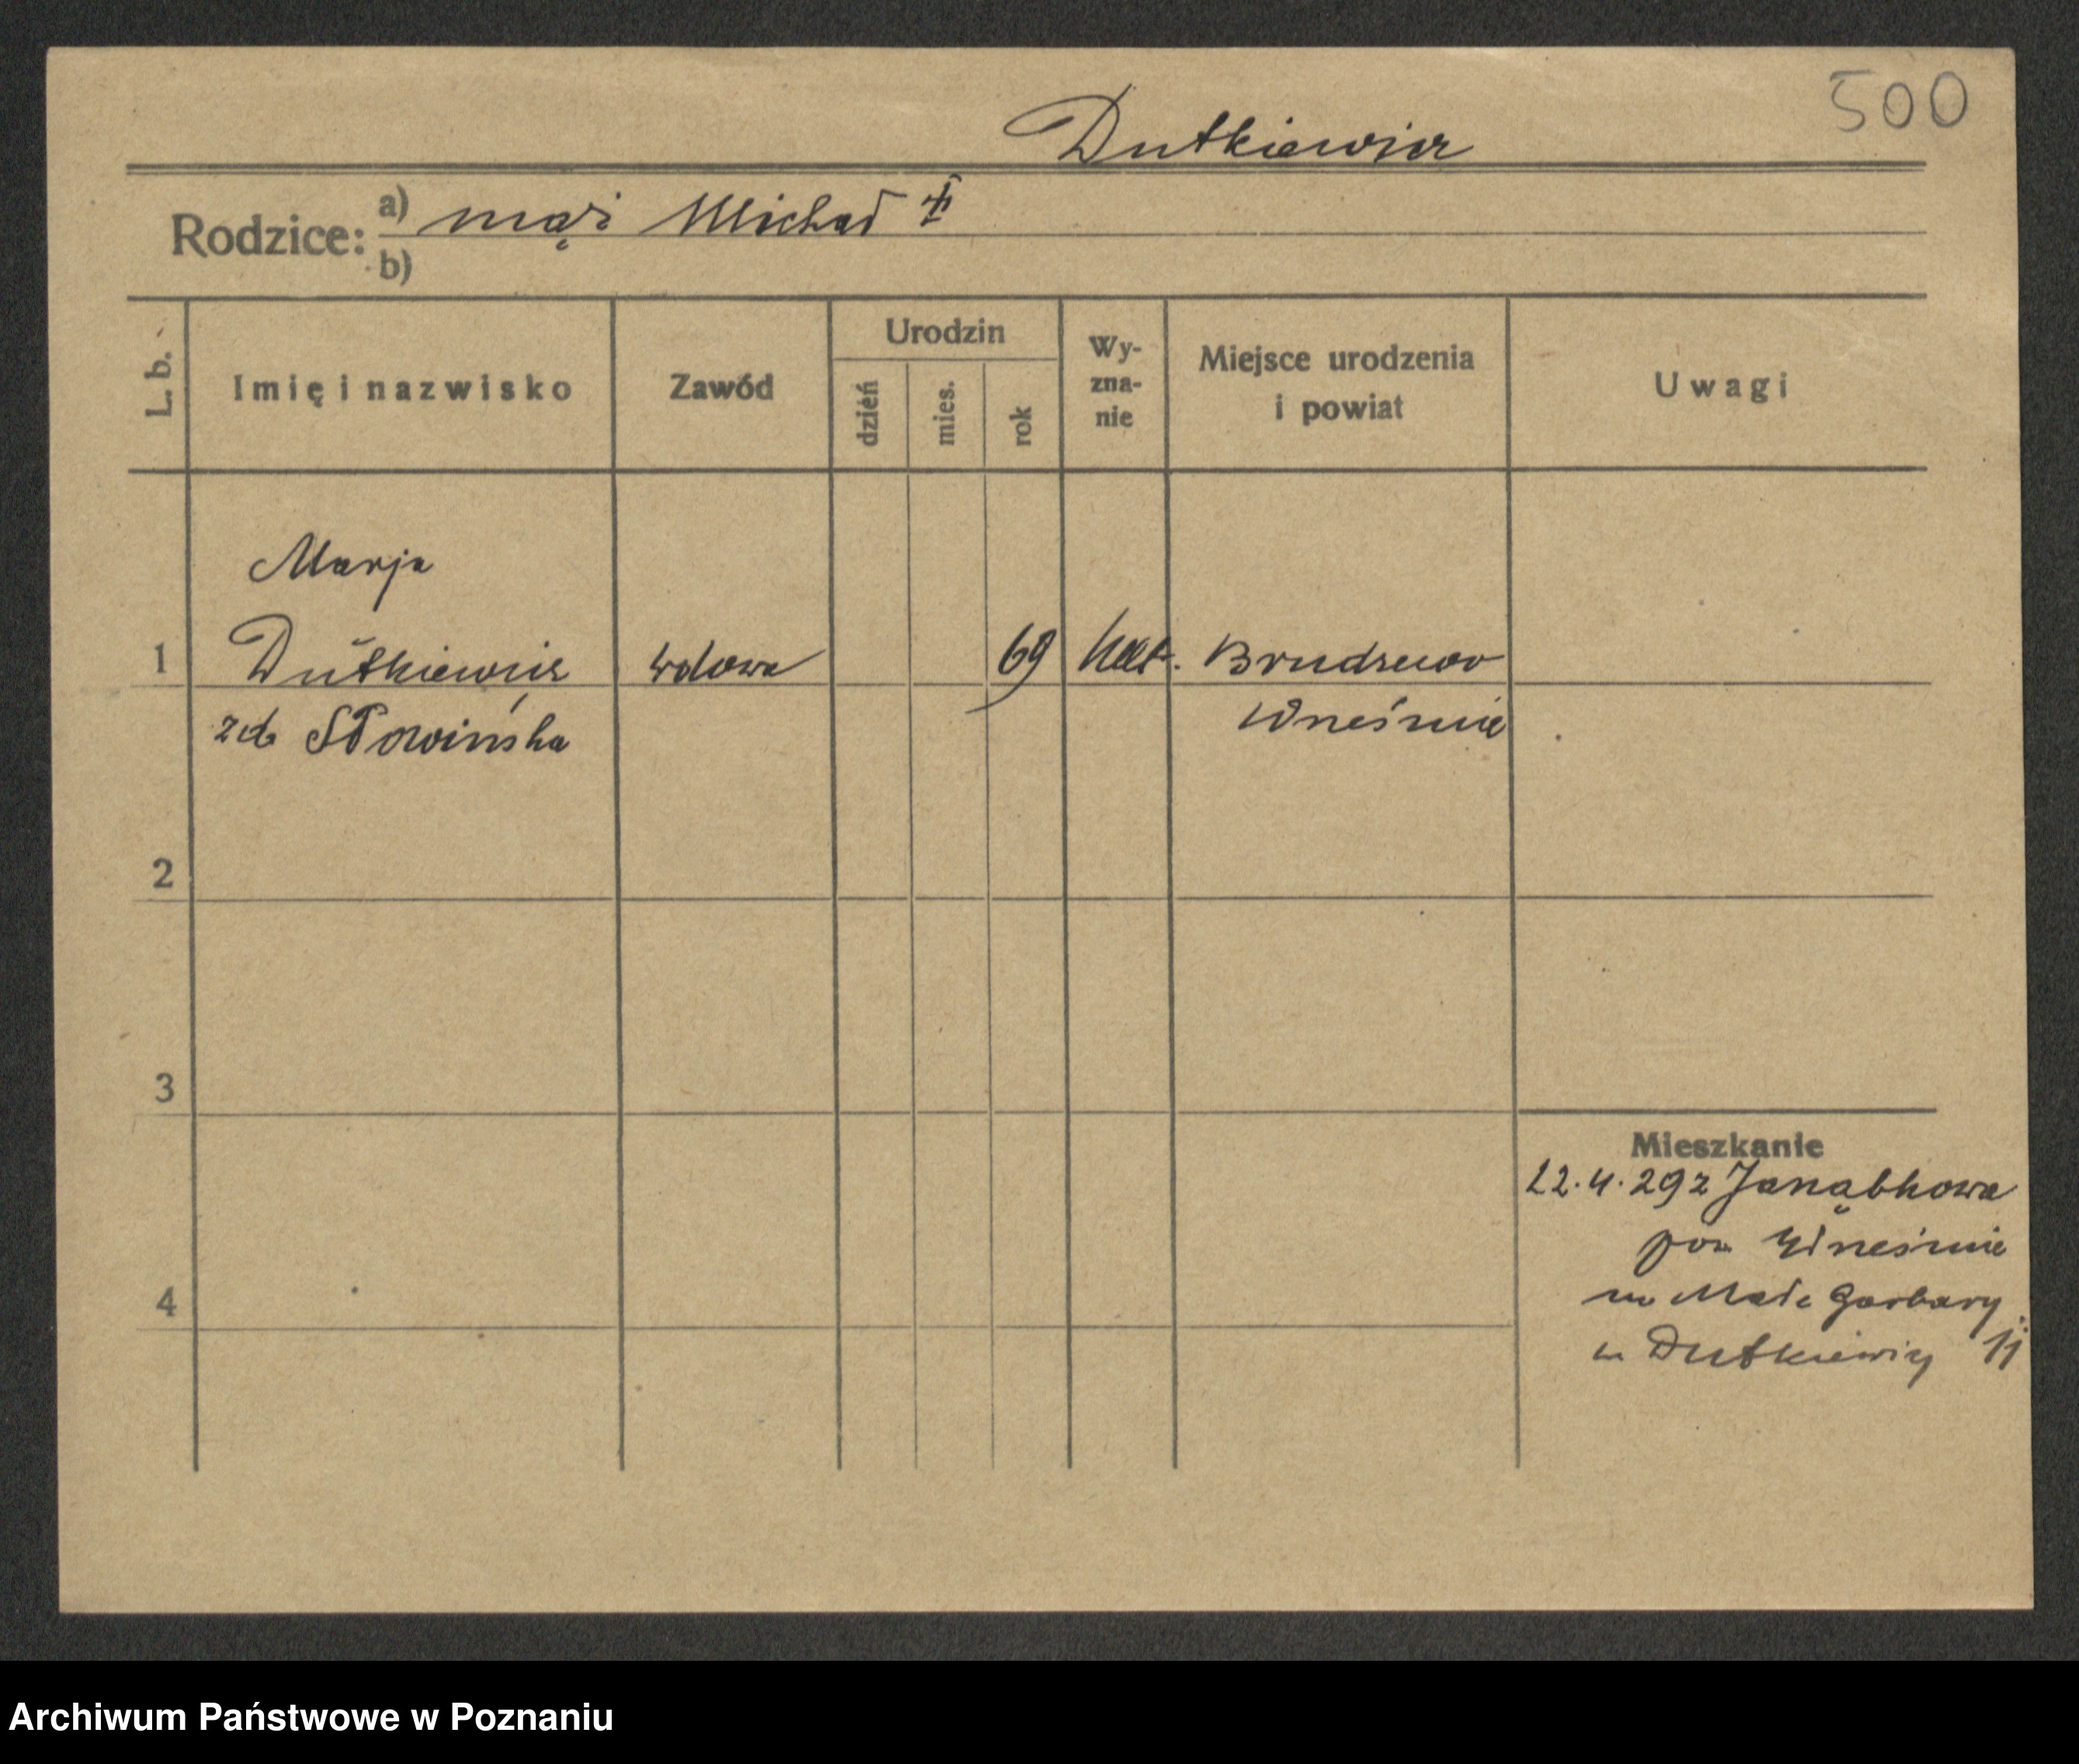 500
Dutkiewicz
Rodzice: a) mąż Michał ‡
b)
L. b.
Imię i nazwisko
Zawód
Urodzin
dzień
mies.
rok
Wy-
zna-
nie
Miejsce urodzenia
i powiat
Uwagi
Marja
1 Dutkiewicz wdowa 69 kat. Brudzewo
zd Słowińska Wrześnie
2
3
Mieszkanie
12.4.29 z
pow Wrześnie
na Małe Garbary
4
u Dutkiewicz 11
Archiwum Państwowe w Poznaniu